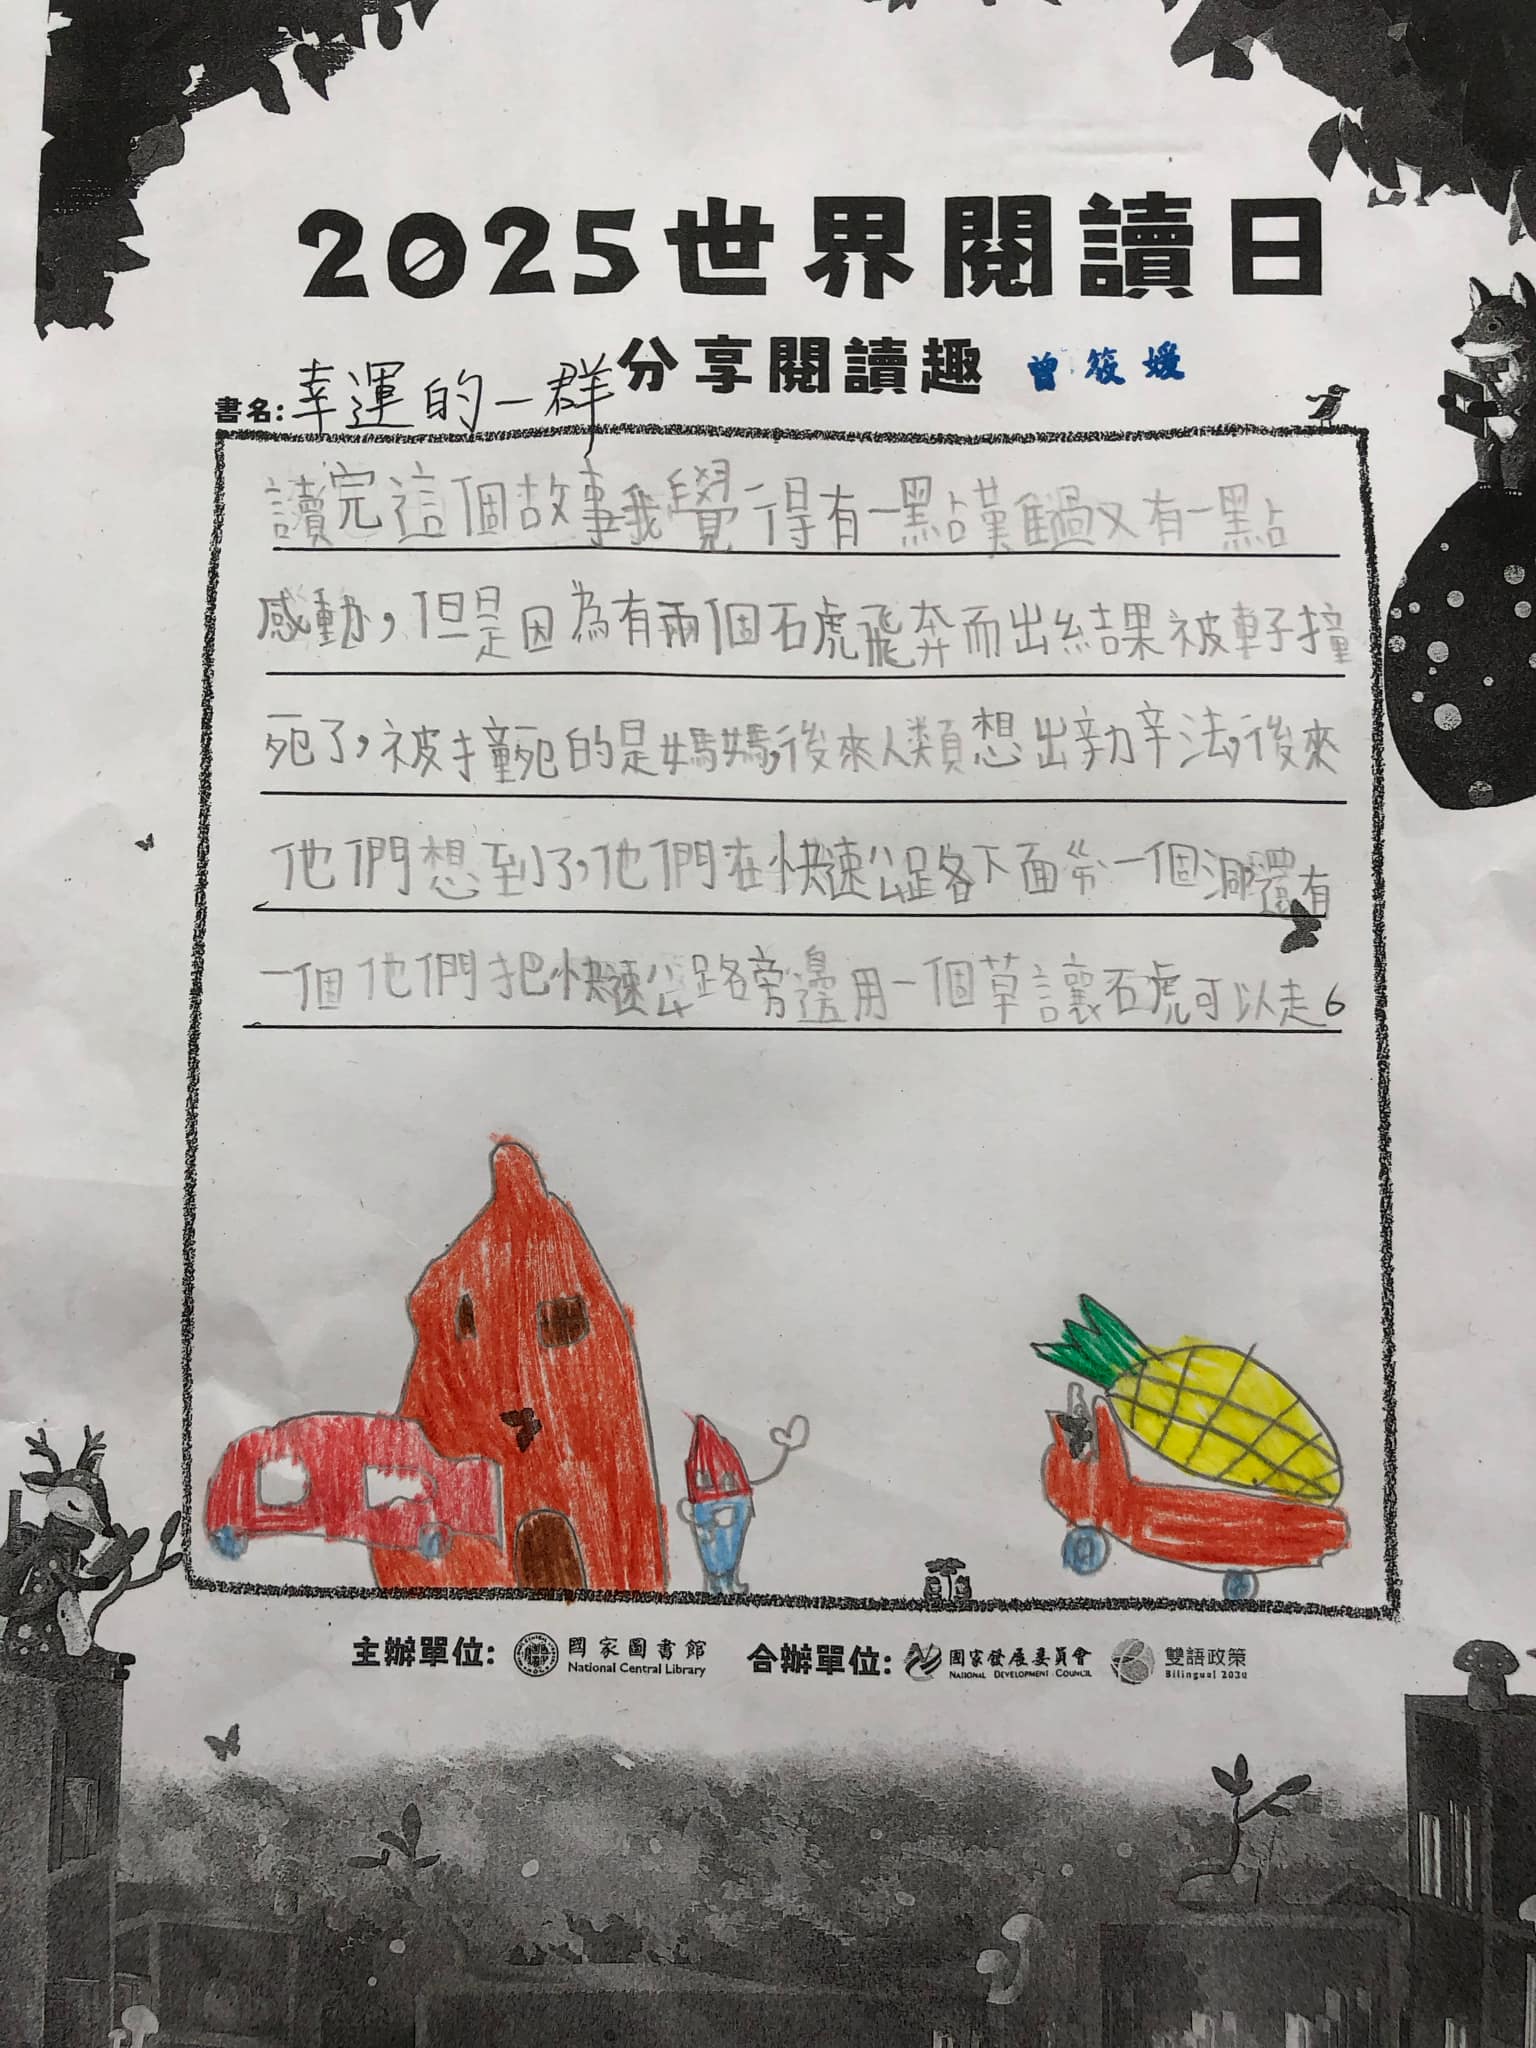 2025世界閱讀日
分享閱讀趣 曾筱媛
書名:幸運的一群
讀完這個故事我覺得有一點難過又有一點
感動,但是因為有兩個石虎飛奔而出結果被車子撞
死了,被撞死的是媽媽,後來人類想出辦法,後來
他們想到了,他們在快速公路下面 一個洞還有
一個他們把快速公路旁邊用一個草讓石虎可以走。
主辦單位: 國家圖書館 合辦單位: 國家發展委員會 雙語政策
National Central Library NATIONAL DEVELOPMENT COUNCIL Bilingual 2030